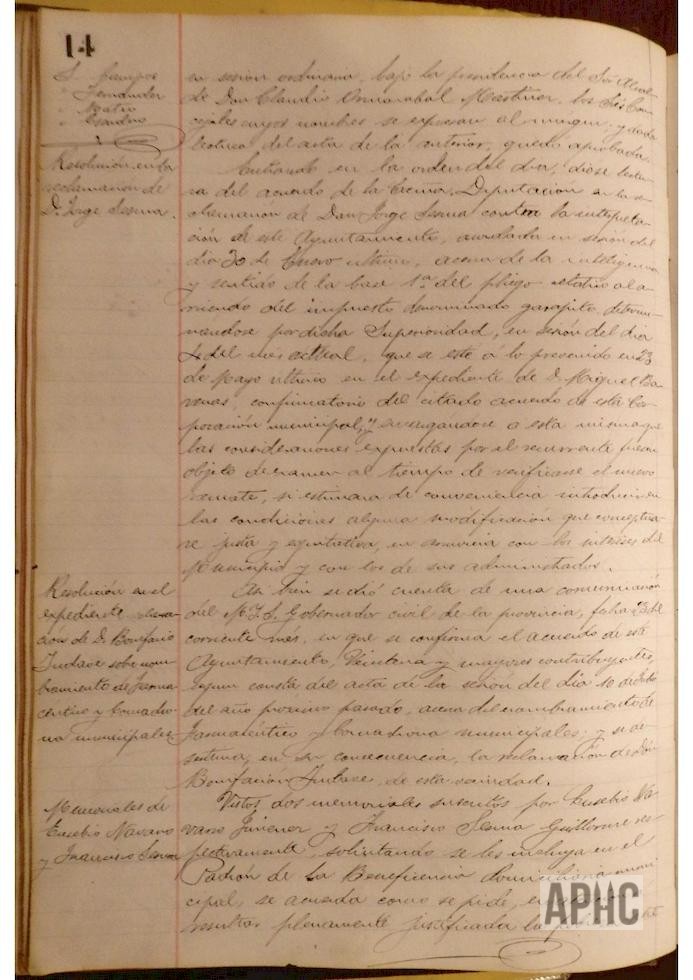 14
S. Campos
" Fernander
" Mateo
en sesion ordinaria, bajo la presidencia del Sor Alcal-
de Don Claudio Armarabal Martiner, los Sres Con-
cejales cuyos nombres se expresan al margen; y dada
lectura del acta de la anterior, quedó aprobada.
Resolución en la
reclamanón de
D. Jorge Sesma.
Entrando en la orden del dia, dióse lectu-
ra del acuerdo de la Excma. Diputación en la re-
clamanón de Don Jorge Sesma contra la interpreta-
ción de este Ayuntamiento, acordada en sesión del
dia 30 de Enero ultimo, acerca de la inteligencia
y sentido de la base 1ª del pliego relativo al a-
rriendo del impuesto denominado garapito, determi-
nandose por dicha Superioridad, en sesión del dia
4 del mes actual, que se esté á lo prevenido en 23
de Mayo ultimo en el expediente de D. Miguel Ba-
renas, confirmatorio del citado acuerdo de esta Cor-
poración municipal, y encargandose a esta misma que
las consideraciones expuestas por el recurrente fueran
objeto de examen al tiempo de verificarse el nuevo
remate, si estimara de conveniencia introducir en
las condiciones alguna modificación que conceptua-
re justa y equitativa, en armonia con los intereses del
Municipio y con los de sus administrados.
Resolución en el
expediente
de D. Bonifacio
sobre nom-
bramiento de Farma-
céutico y Comadro-
na municipales
Asi bien se dió cuenta de una comunicanón
del M. I. S. Gobernador civil de la provincia, fecha 13 del
corriente mes, en que se confirma el acuerdo de este
Ayuntamiento, Veintena y mayores contribuyentes,
segun consta del acta de la sesión del dia 10 de
del año proximo pasado, acerca del nombramiento de
Farmacéutico y Comadrona municipales; y se de-
sestima, en su consecuencia, la reclamanón de Don
Bonifacio, de esta vecindad.
Memoriales de
Eusebio Navarro
y Francisco Sesma
Vistos dos memoriales suscritos por Eusebio Na-
varro Jimener y Francisco Sesma Guillorme res-
pectivamente, solicitando se les incluya en el
Padrón de la Beneficencia domiciliaria muni-
cipal, se acuerda como se pide,
resultar plenamente justificada la
APHC